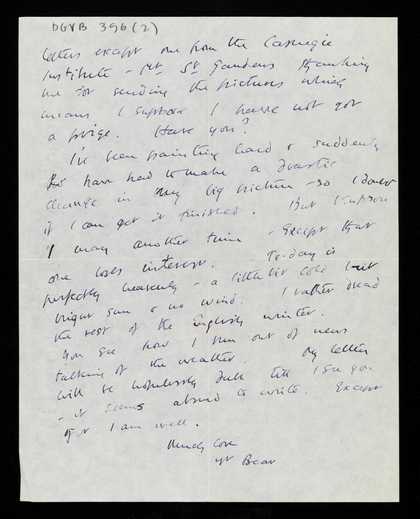 DGVB 396(2)
letters except one from the Carnegie
Institute – Mr St Gaudens thanking
me for sending the pictures which
means I suppose I have not got
a prize. Have you?
I've been painting hard & suddenly
have had to make a drastic
change in my big picture – so I doubt
if I can get it finished. But I suppose
I may another time – except that
one loses interest. To-day is
perfectly heavenly – a little bit cold but
bright sun & no wind. I rather dread
the rest of the English winter.
You see how I run out of news
talking of the weather. My letters
will be hopelessly dull till I see you
– it seems absurd to write. Except
I am well.
Much love
yr Bear